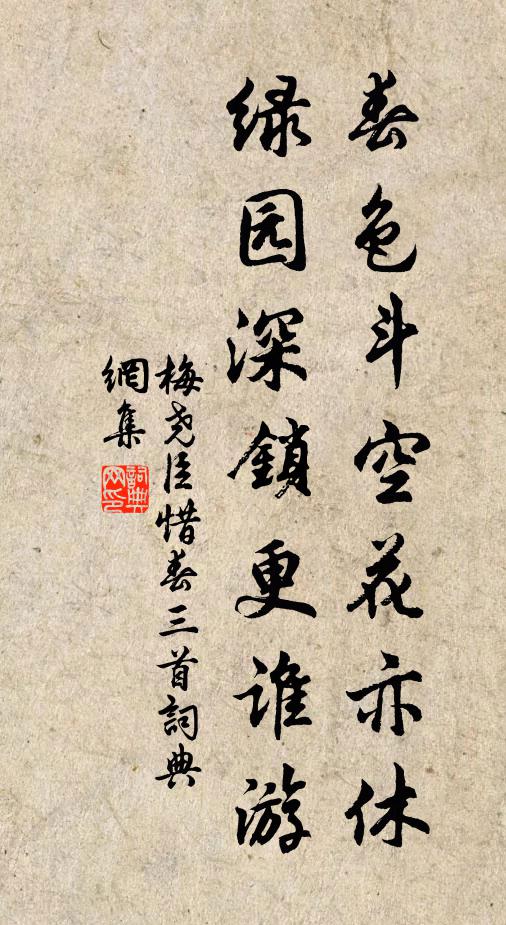 春色斗空花亦休
绿园深鎖更谁游
梅尧臣惜春三首詞典
網集
詞典
网印